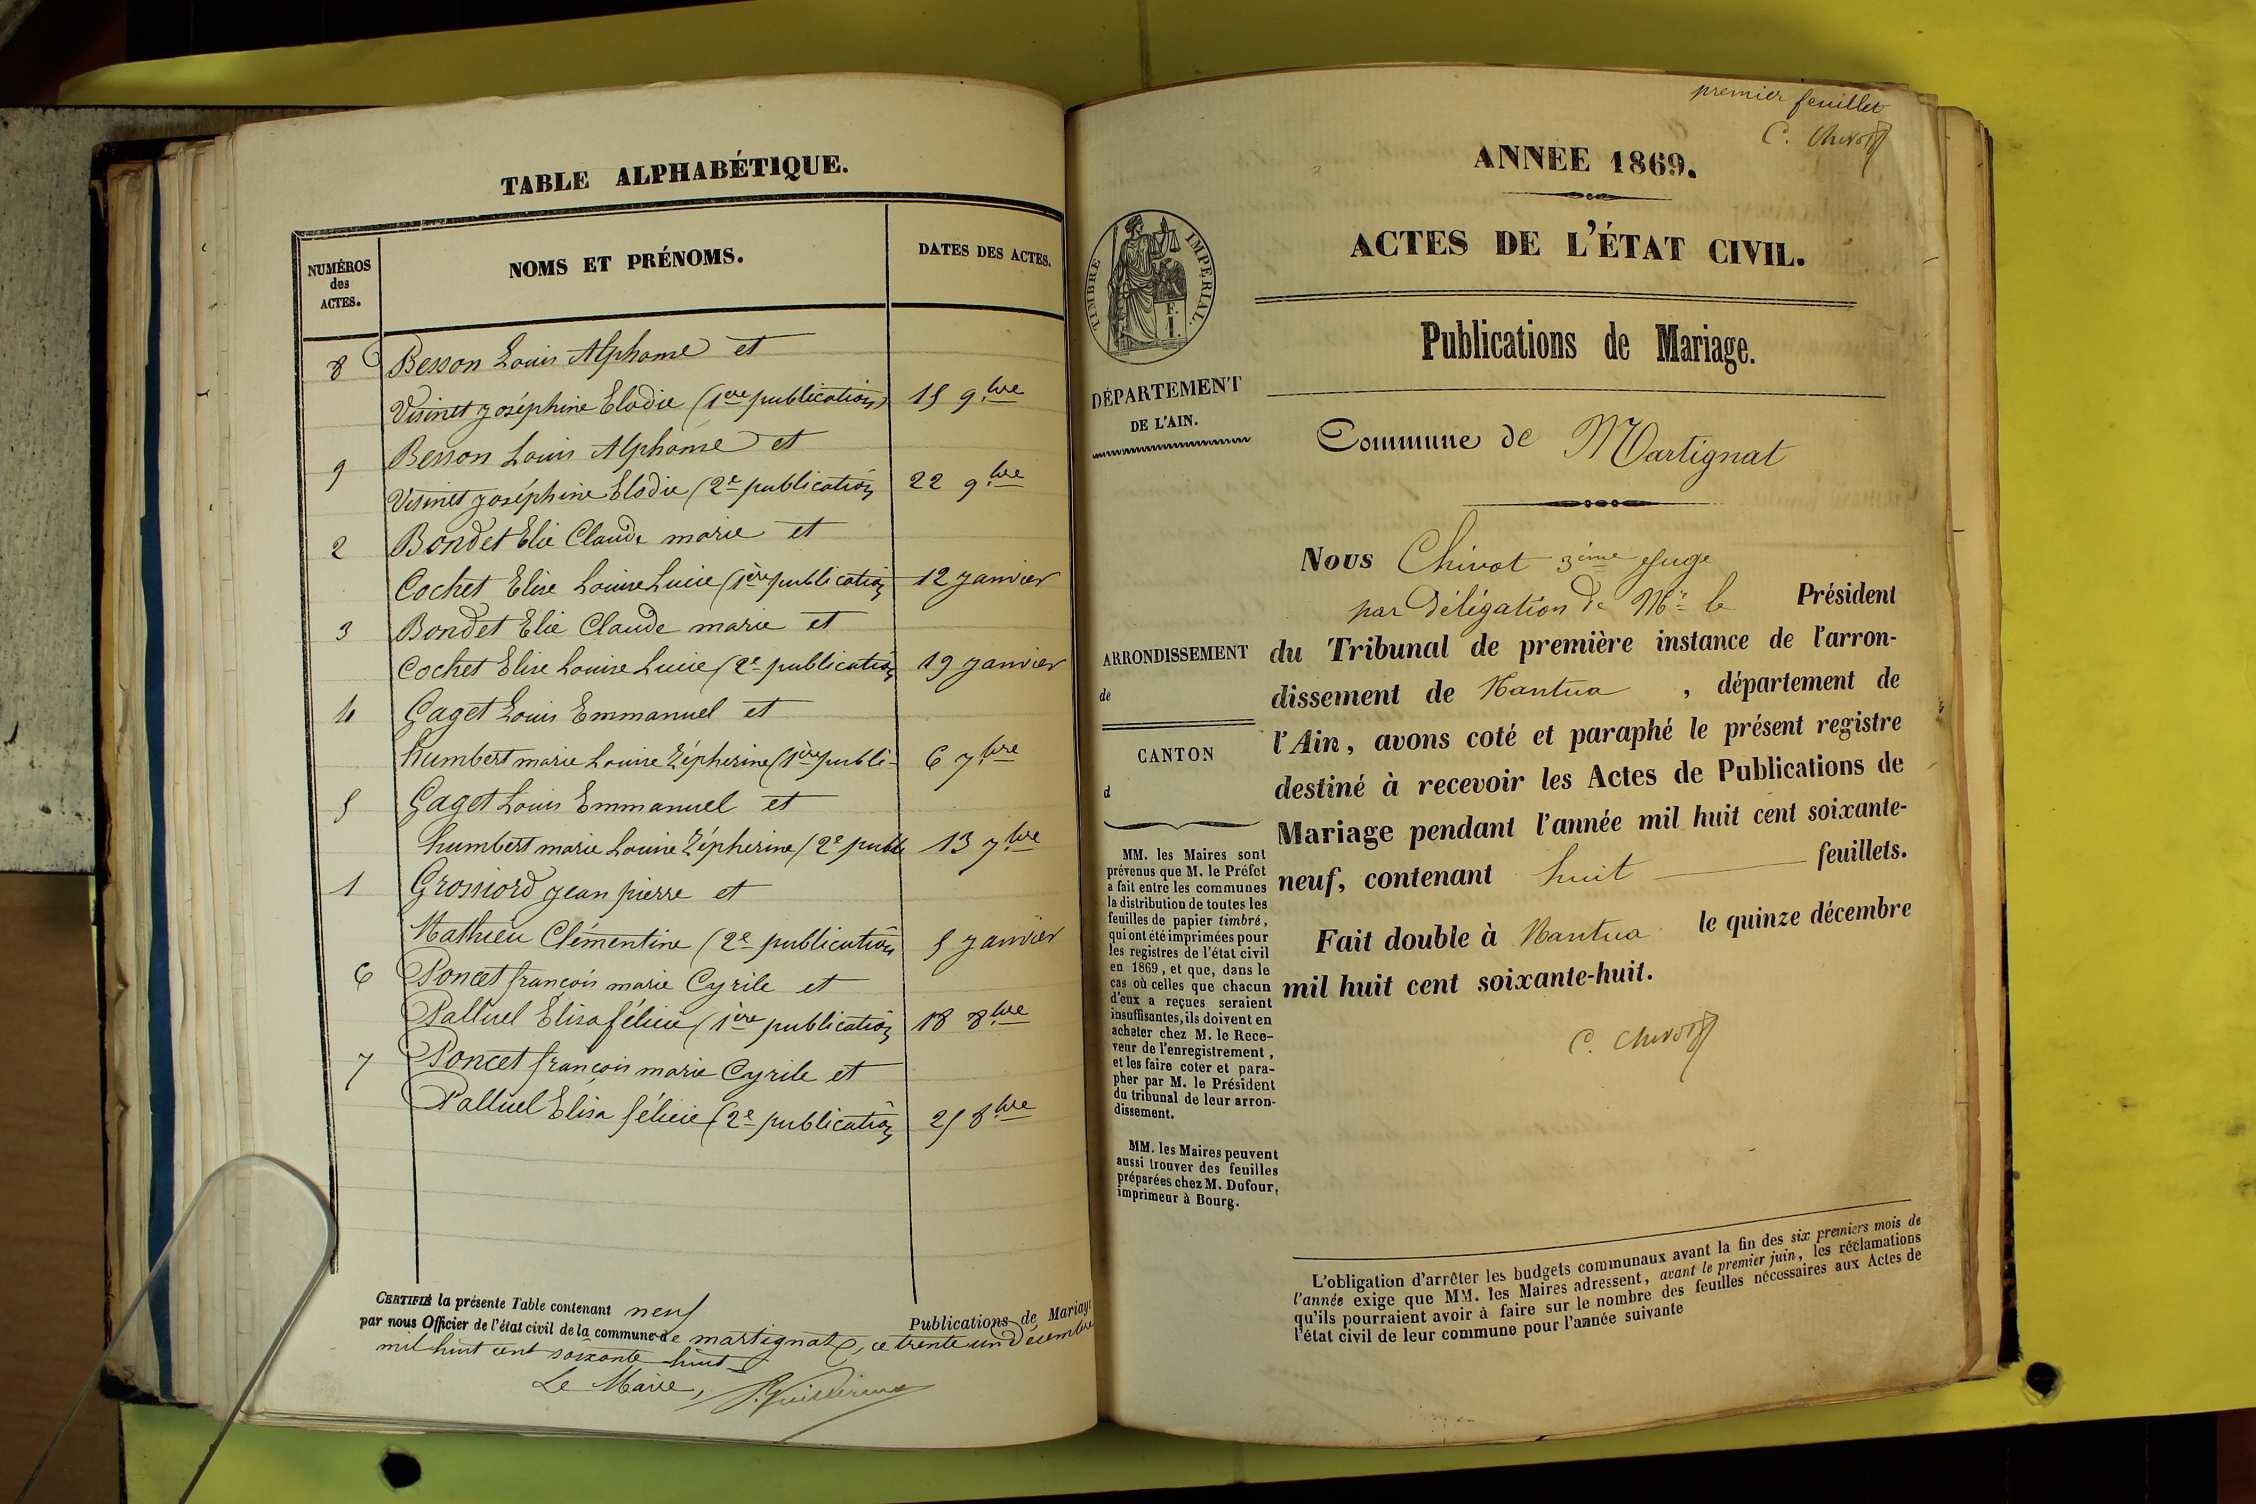 TABLE ALPHABÉTIQUE.
NUMÉROS
des
ACTES.
NOMS ET PRÉNOMS.
DATES DES ACTES.
8 Besson Louis Alphonse et
Visinet joséphine Elodie (1ere publication) 15 9.bre
9 Besson Louis Alphonse et
Visinet joséphine Elodie (2e publication 22 9.bre
2 Bondet Elie Claude marie et
Cochet Elise Louise Lucie (1ère publication 12 janvier
3 Bondet Elie Claude marie et
Cochet Elise Louise Lucie (2e publication 19 janvier
4 Gaget Louis Emmanuel et
humbert marie Louise Zépherine (1ère publi- 6 7.bre
5 Gaget Louis Emmanuel et
humbert marie Louise Zépherine (2e publ 13 7.bre
1 Grossiord jean pierre et
Mathieu Clémentine (2e publication 5 janvier
6 Poncet françois marie Cyrile et
Palluel Elisa félicie (1ère publication 18 8.bre
7 Poncet françois marie Cyrile et
Palluel Elisa félicie (2e publication 25 8.bre
CERTIFIÉ la présente Table contenant neuf Publications de Mariage
par nous Officier de l'état civil de la commune de martignat, ce trente un décembre
mil huit cent soixante huit
Le Maire,
premier feuillet
C. Chivot
ANNÉE 1869.
ACTES DE L'ÉTAT CIVIL.
TIMBRE IMPÉRIAL.
F.
I.
Publications de Mariage.
DÉPARTEMENT
DE L'AIN.
Commune de Martignat
Nous Chivot 3ème Juge
par délégation de Mr le Président
du Tribunal de première instance de l'arron-
dissement de Nantua , département de
l'Ain, avons coté et paraphé le présent registre
destiné à recevoir les Actes de Publications de
Mariage pendant l'année mil huit cent soixante-
neuf, contenant huit feuillets.
Fait double à Nantua le quinze décembre
mil huit cent soixante-huit.
C. Chivot
ARRONDISSEMENT
de
CANTON
d
MM. les Maires sont
prévenus que M. le Préfet
a fait entre les communes
la distribution de toutes les
feuilles de papier timbré,
qui ont été imprimées pour
les registres de l'état civil
en 1869, et que, dans le
cas où celles que chacun
d'eux a reçues seraient
insuffisantes, ils doivent en
acheter chez M. le Rece-
veur de l'enregistrement,
et les faire coter et para-
pher par M. le Président
du tribunal de leur arron-
dissement.
MM. les Maires peuvent
aussi trouver des feuilles
préparées chez M. Dufour,
imprimeur à Bourg.
L'obligation d'arrêter les budgets communaux avant la fin des six premiers mois de
l'année exige que MM. les Maires adressent, avant le premier juin, les réclamations
qu'ils pourraient avoir à faire sur le nombre des feuilles nécessaires aux Actes de
l'état civil de leur commune pour l'année suivante